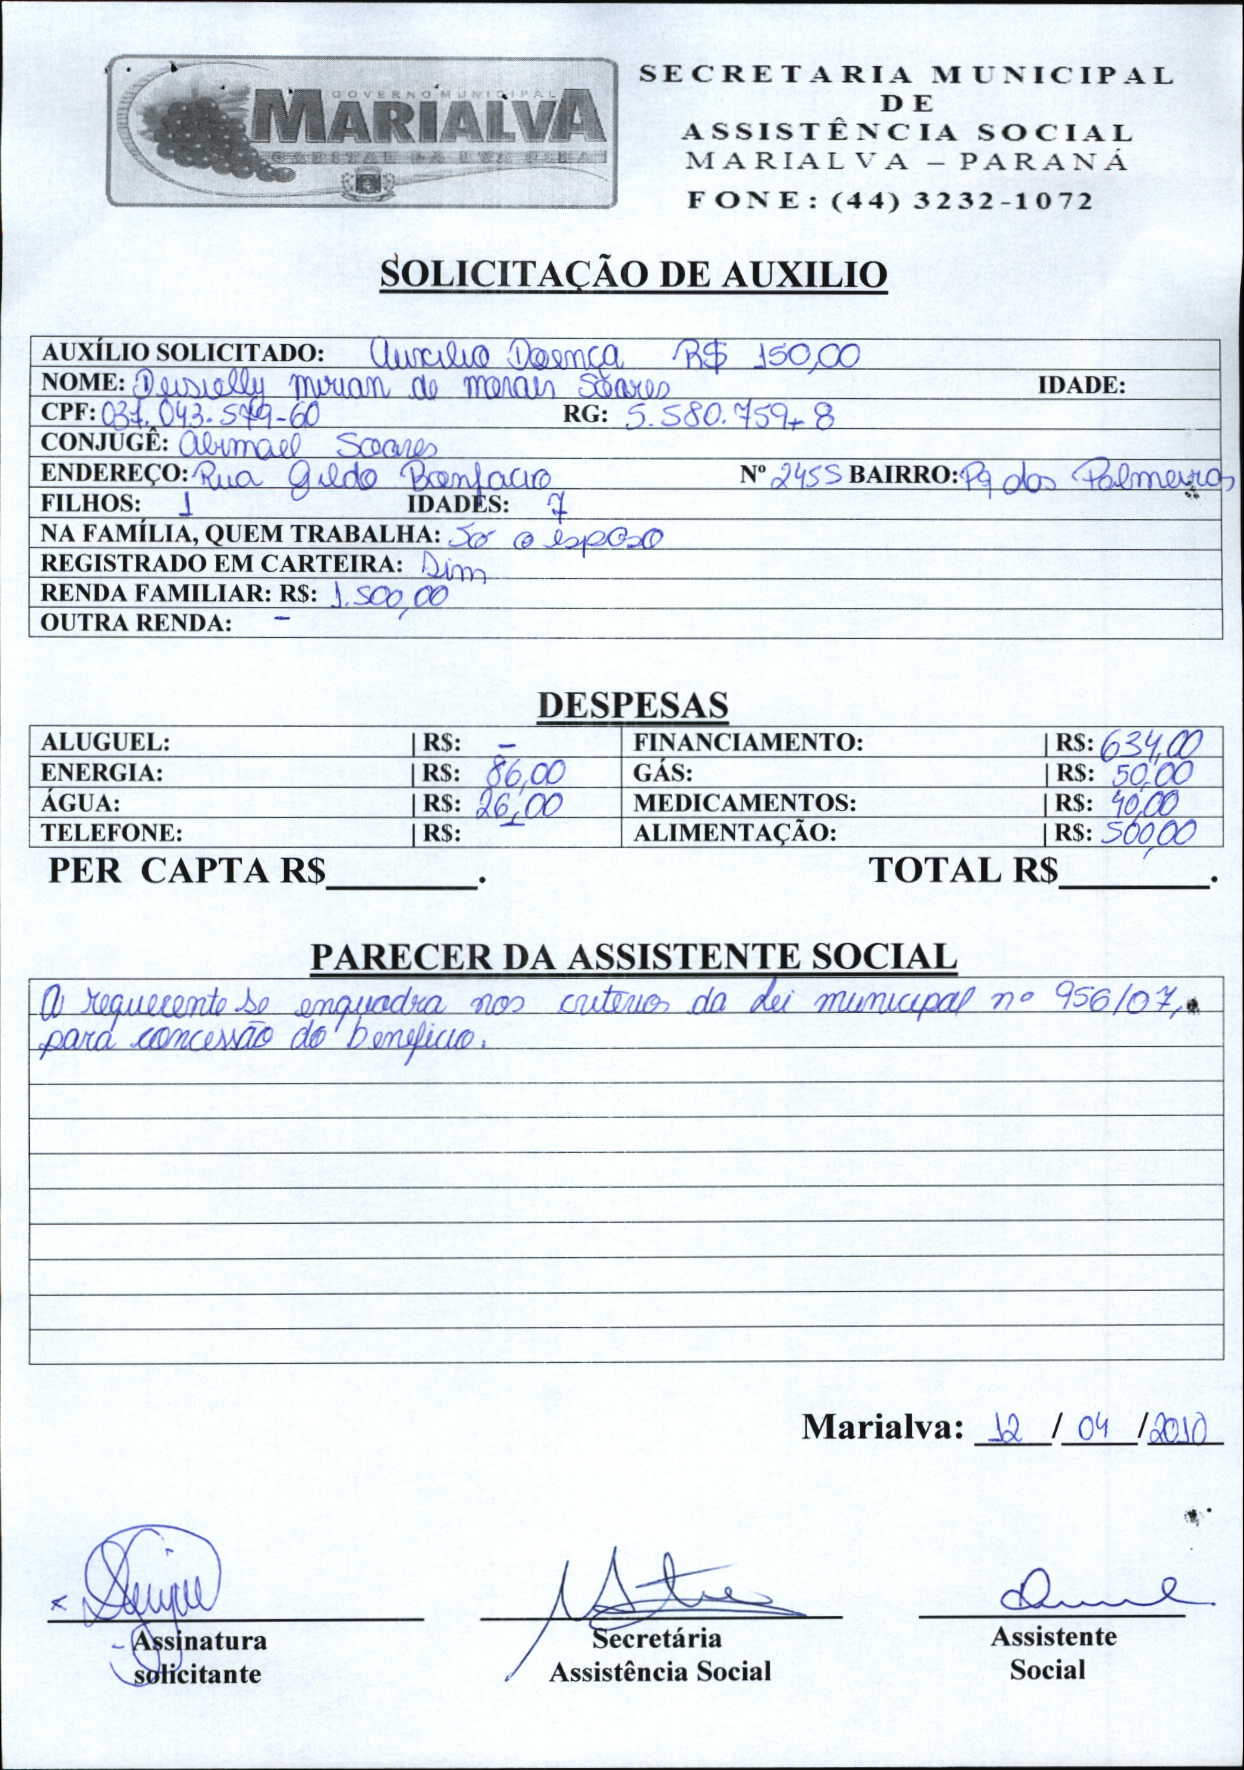 GOVERNO MUNICIPAL
MARIALVA
CAPITAL DA UVA FINA
SECRETARIA MUNICIPAL
DE
ASSISTÊNCIA SOCIAL
MARIALVA – PARANÁ
FONE: (44) 3232-1072
SOLICITAÇÃO DE AUXILIO
AUXÍLIO SOLICITADO: Auxilio Doença R$ 150,00
NOME: Deisielly mirian de morais Soares IDADE:
CPF: 037.043.579-60 RG: 5.580.759-8
CONJUGÊ: Abimael Soares
ENDEREÇO: Rua Gildo Bonfacio Nº 2455 BAIRRO: Pq das Palmeiras
FILHOS: 1 IDADES: 7
NA FAMÍLIA, QUEM TRABALHA: Só o esposo
REGISTRADO EM CARTEIRA: Sim
RENDA FAMILIAR: R$: 1.500,00
OUTRA RENDA: -
DESPESAS
ALUGUEL: | R$: - FINANCIAMENTO: | R$: 634,00
ENERGIA: | R$: 86,00 GÁS: | R$: 50,00
ÁGUA: | R$: 26,00 MEDICAMENTOS: | R$: 40,00
TELEFONE: | R$: - ALIMENTAÇÃO: | R$: 500,00
PER CAPTA R$________. TOTAL R$________.
PARECER DA ASSISTENTE SOCIAL
A requerente se enquadra nos criterios da Lei municipal nº 956/07,
para concessão do beneficio.
Marialva: 12 / 04 / 2010
Assinatura Secretária Assistente
solicitante Assistência Social Social